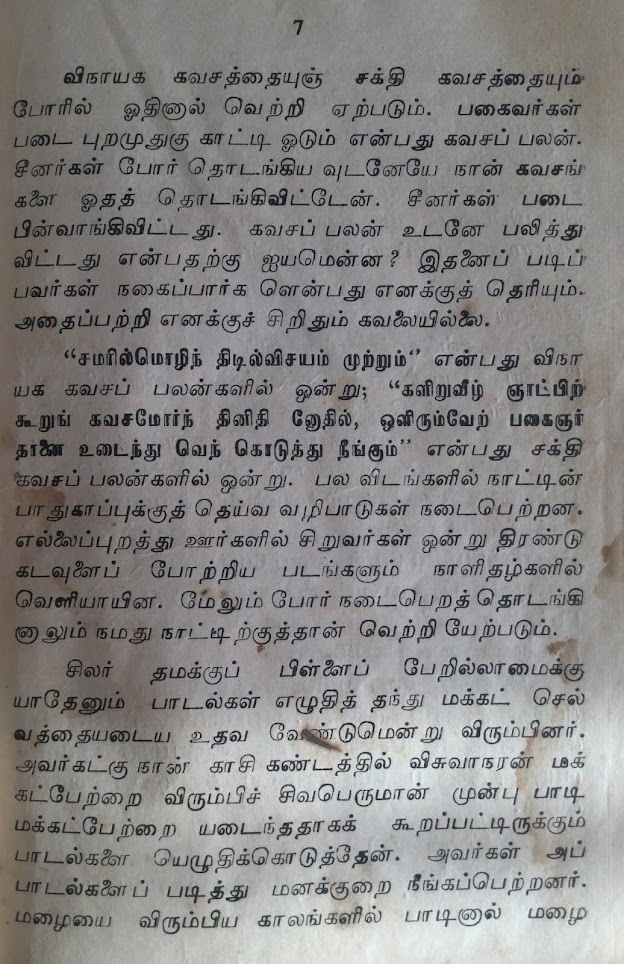 7
விநாயக கவசத்தையுஞ் சக்தி கவசத்தையும்
போரில் ஓதினால் வெற்றி ஏற்படும். பகைவர்கள்
படை புறமுதுகு காட்டி ஓடும் என்பது கவசப் பலன்.
சீனர்கள் போர் தொடங்கிய வுடனேயே நான் கவசங்
களை ஓதத் தொடங்கிவிட்டேன். சீனர்கள் படை
பின்வாங்கிவிட்டது. கவசப் பலன் உடனே பலித்து
விட்டது என்பதற்கு ஐயமென்ன? இதனைப் படிப்
பவர்கள் நகைப்பார்க ளென்பது எனக்குத் தெரியும்.
அதைப்பற்றி எனக்குச் சிறிதும் கவலையில்லை.
“சமரில்மொழிந் திடில்விசயம் முற்றும்” என்பது விநா
யக கவசப் பலன்களில் ஒன்று; “களிறுவீழ் ஞாட்பிற்
கூறுங் கவசமோர்ந் தினிதி னோதில், ஒளிரும்வேற் பகைஞர்
தானை உடைந்து வெந் கொடுத்து நீங்கும்” என்பது சக்தி
கவசப் பலன்களில் ஒன்று. பல விடங்களில் நாட்டின்
பாதுகாப்புக்குத் தெய்வ வழிபாடுகள் நடைபெற்றன.
எல்லைப்புறத்து ஊர்களில் சிறுவர்கள் ஒன்று திரண்டு
கடவுளைப் போற்றிய படங்களும் நாளிதழ்களில்
வெளியாயின. மேலும் போர் நடைபெறத் தொடங்கி
னாலும் நமது நாட்டிற்குத்தான் வெற்றி யேற்படும்.
சிலர் தமக்குப் பிள்ளைப் பேறில்லாமைக்கு
யாதேனும் பாடல்கள் எழுதித் தந்து மக்கட் செல்
வத்தையடைய உதவ வேண்டுமென்று விரும்பினர்.
அவர்கட்கு நான் காசி கண்டத்தில் விசுவாநரன் மக்
கட்பேற்றை விரும்பிச் சிவபெருமான் முன்பு பாடி
மக்கட்பேற்றை யடைந்ததாகக் கூறப்பட்டிருக்கும்
பாடல்களை யெழுதிக்கொடுத்தேன். அவர்கள் அப்
பாடல்களைப் படித்து மனக்குறை நீங்கப்பெற்றனர்.
மழையை விரும்பிய காலங்களில் பாடினால் மழை